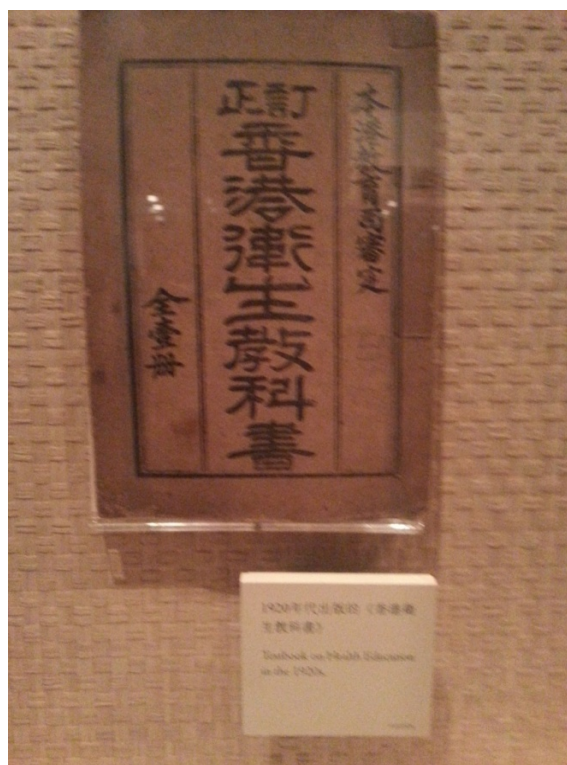 本港教育審定
訂正
香港衛生教科書
全壹册
1920年代出版的《香港衞
生教科書》
Textbook on Health Education
in the 1920s.